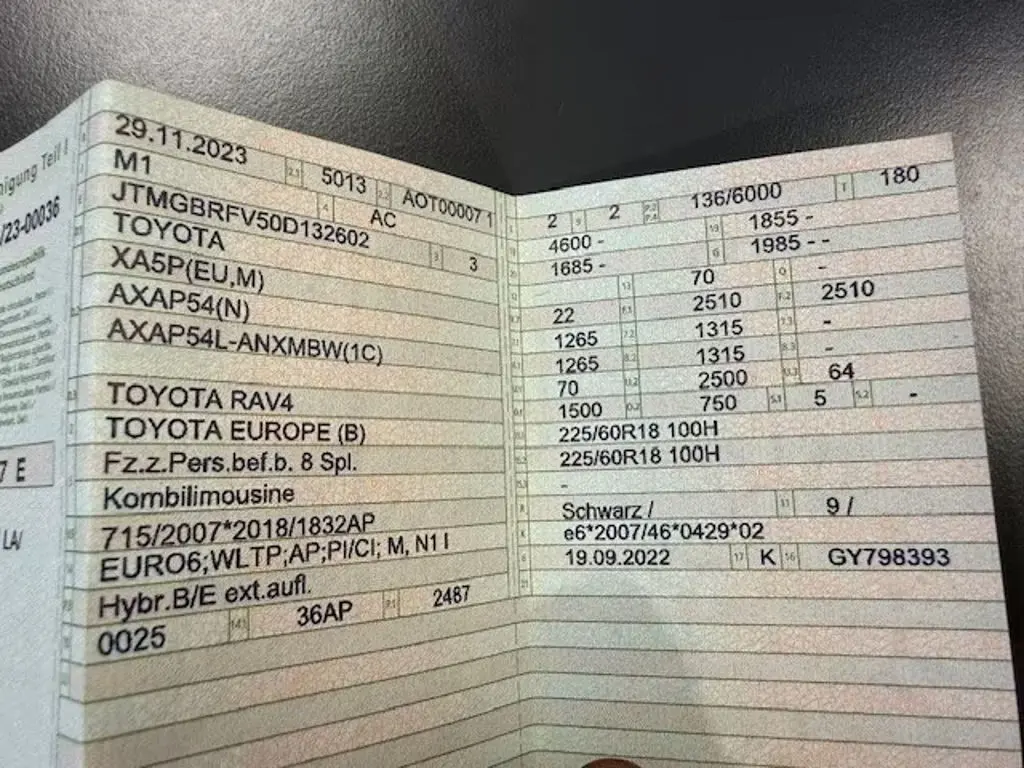 nigung Teil
/23-00036
7 E
LA/
29.11.2023 2.1 5013 2.2 AOT00007 1
M1 4 AC
JTMGBRFV50D132602 3 3
TOYOTA
XA5P(EU,M)
AXAP54(N)
AXAP54L-ANXMBW(1C)
TOYOTA RAV4
TOYOTA EUROPE (B)
Fz.z.Pers.bef.b. 8 Spl.
Kombilimousine
715/2007*2018/1832AP
EURO6;WLTP;AP;PI/CI; M, N1 I
Hybr.B/E ext.aufl.
0025 14.1 36AP P.1 2487
2 9 2 P.2 P.4 136/6000 T 180
4600 - 19 1855 -
1685 - G 1985 - -
13 70 Q -
22 F.1 2510 F.2 2510
1265 7.2 1315 7.3 -
1265 8.2 1315 8.3 -
70 U.2 2500 U.3 64
1500 O.2 750 S.1 5 S.2 -
225/60R18 100H
225/60R18 100H
-
Schwarz / 11 9 /
e6*2007/46*0429*02
19.09.2022 17 K 16 GY798393
21